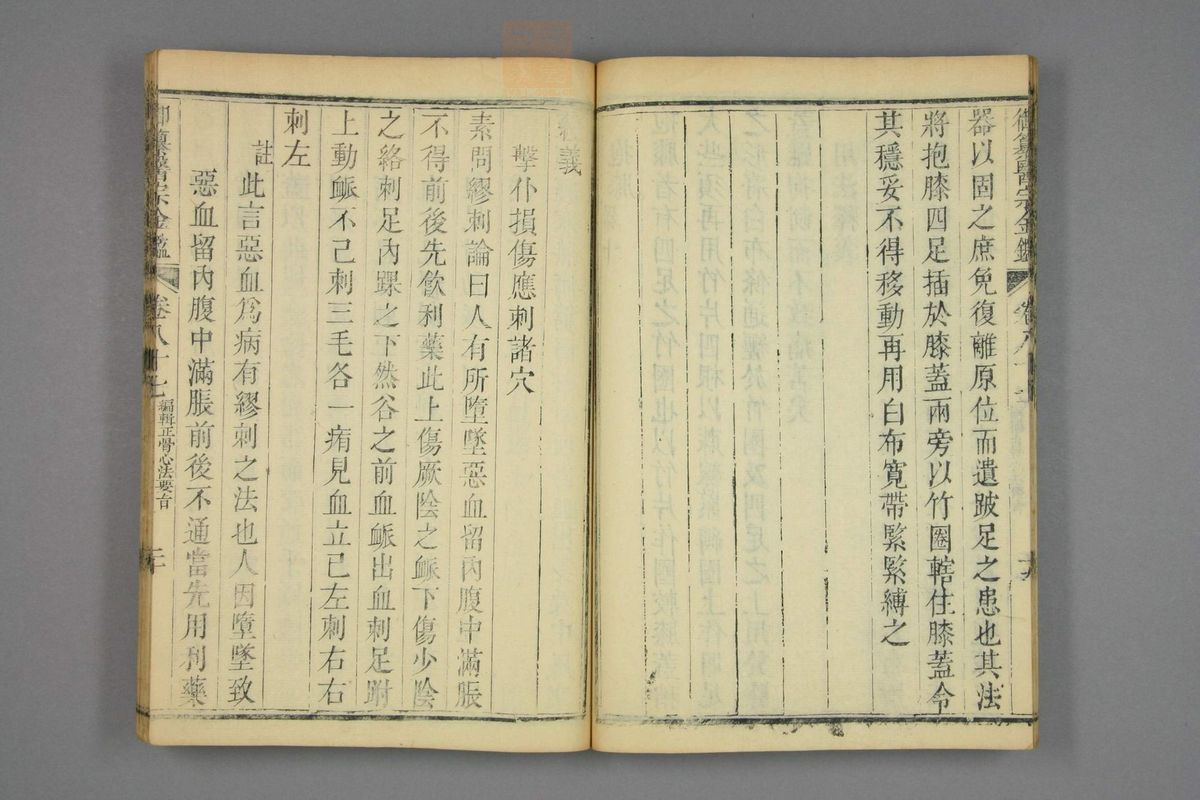 御纂醫宗金鑑
卷八十
器以固之庶免復離原位而遺跛足之患也其法
將抱膝四足插於膝蓋兩旁以竹圈轄住膝蓋令
其穩妥不得移動再用白布寬帶緊緊縛之
義
擊仆損傷應刺諸穴
素問繆刺論曰人有所墮墜惡血留內腹中滿脹
不得前後先飲利藥此上傷厥陰之脈下傷少陰
之絡刺足內踝之下然谷之前血脈出血刺足跗
上動脈不已刺三毛各一痏見血立已左刺右右
刺左
註
此言惡血為病有繆刺之法也人因墮墜致
惡血留內腹中滿脹前後不通當先用利藥
御纂醫宗金鑑
卷八十七
編輯正骨心法要旨
二十